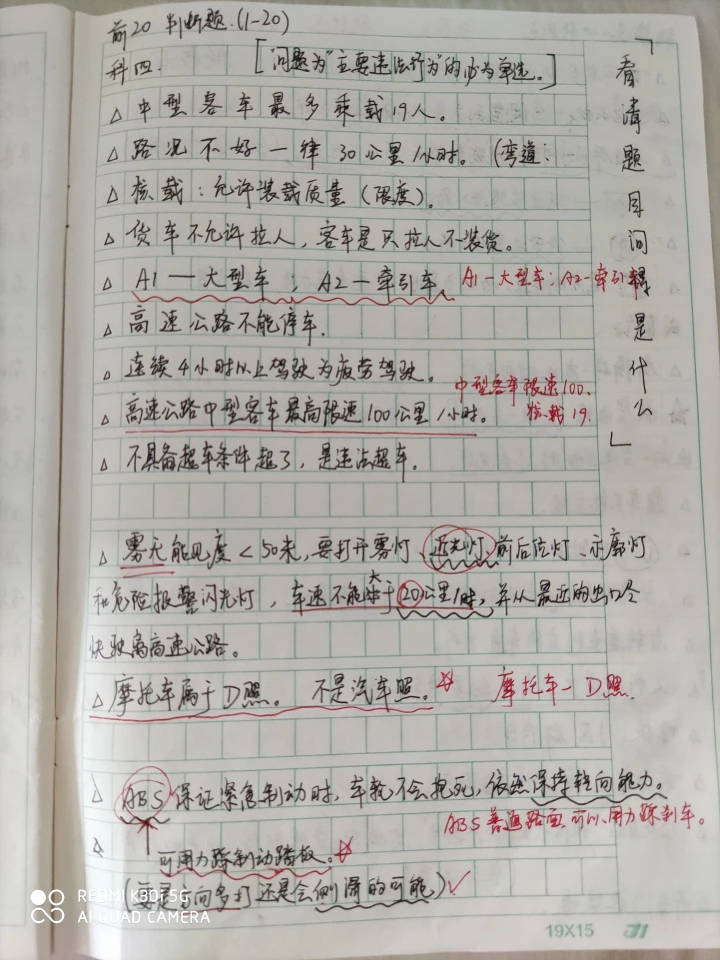 前20 判断题.(1-20)
科四. [问题为"主要违法行为"的必为单选。]
「看清题目问题是什么」
△ 中型客车最多乘载19人。
△ 路况不好一律30公里/小时。(弯道:
△ 核载:允许装载质量(限度)。
△ 货车不允许拉人,客车是只拉人不装货。
△ A1—大型车,A2—牵引车。 A1-大型车;A2-牵引车
△ 高速公路不能停车.
△ 连续4小时以上驾驶为疲劳驾驶。
中型客车限速100.
△ 高速公路中型客车最高限速100公里/小时。 核载19.
△ 不具备超车条件超了,是违法超车.
△ 雾天能见度<50米,要打开雾灯、近光灯、前后位灯、示廓灯
和危险报警闪光灯,车速不能大于20公里/时,并从最近的出口尽
快驶离高速公路。
△ 摩托车属于D照。 不是汽车照。☆ 摩托车-D照.
△ ABS保证紧急制动时,车轮不会抱死,依然保持转向能力。
ABS 普通路面可以用力踩刹车。
△ 可用力踏制动踏板。☆
(方向多打还是会侧滑的可能)✓
REDMI K30i 5G
AI QUAD CAMERA
19X15